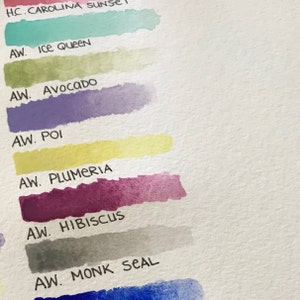 H.C. CAROLINA SUNSET
AW. ICE QUEEN
AW. AVOCADO
AW. POI
AW. PLUMERIA
AW. HIBISCUS
AW. MONK SEAL